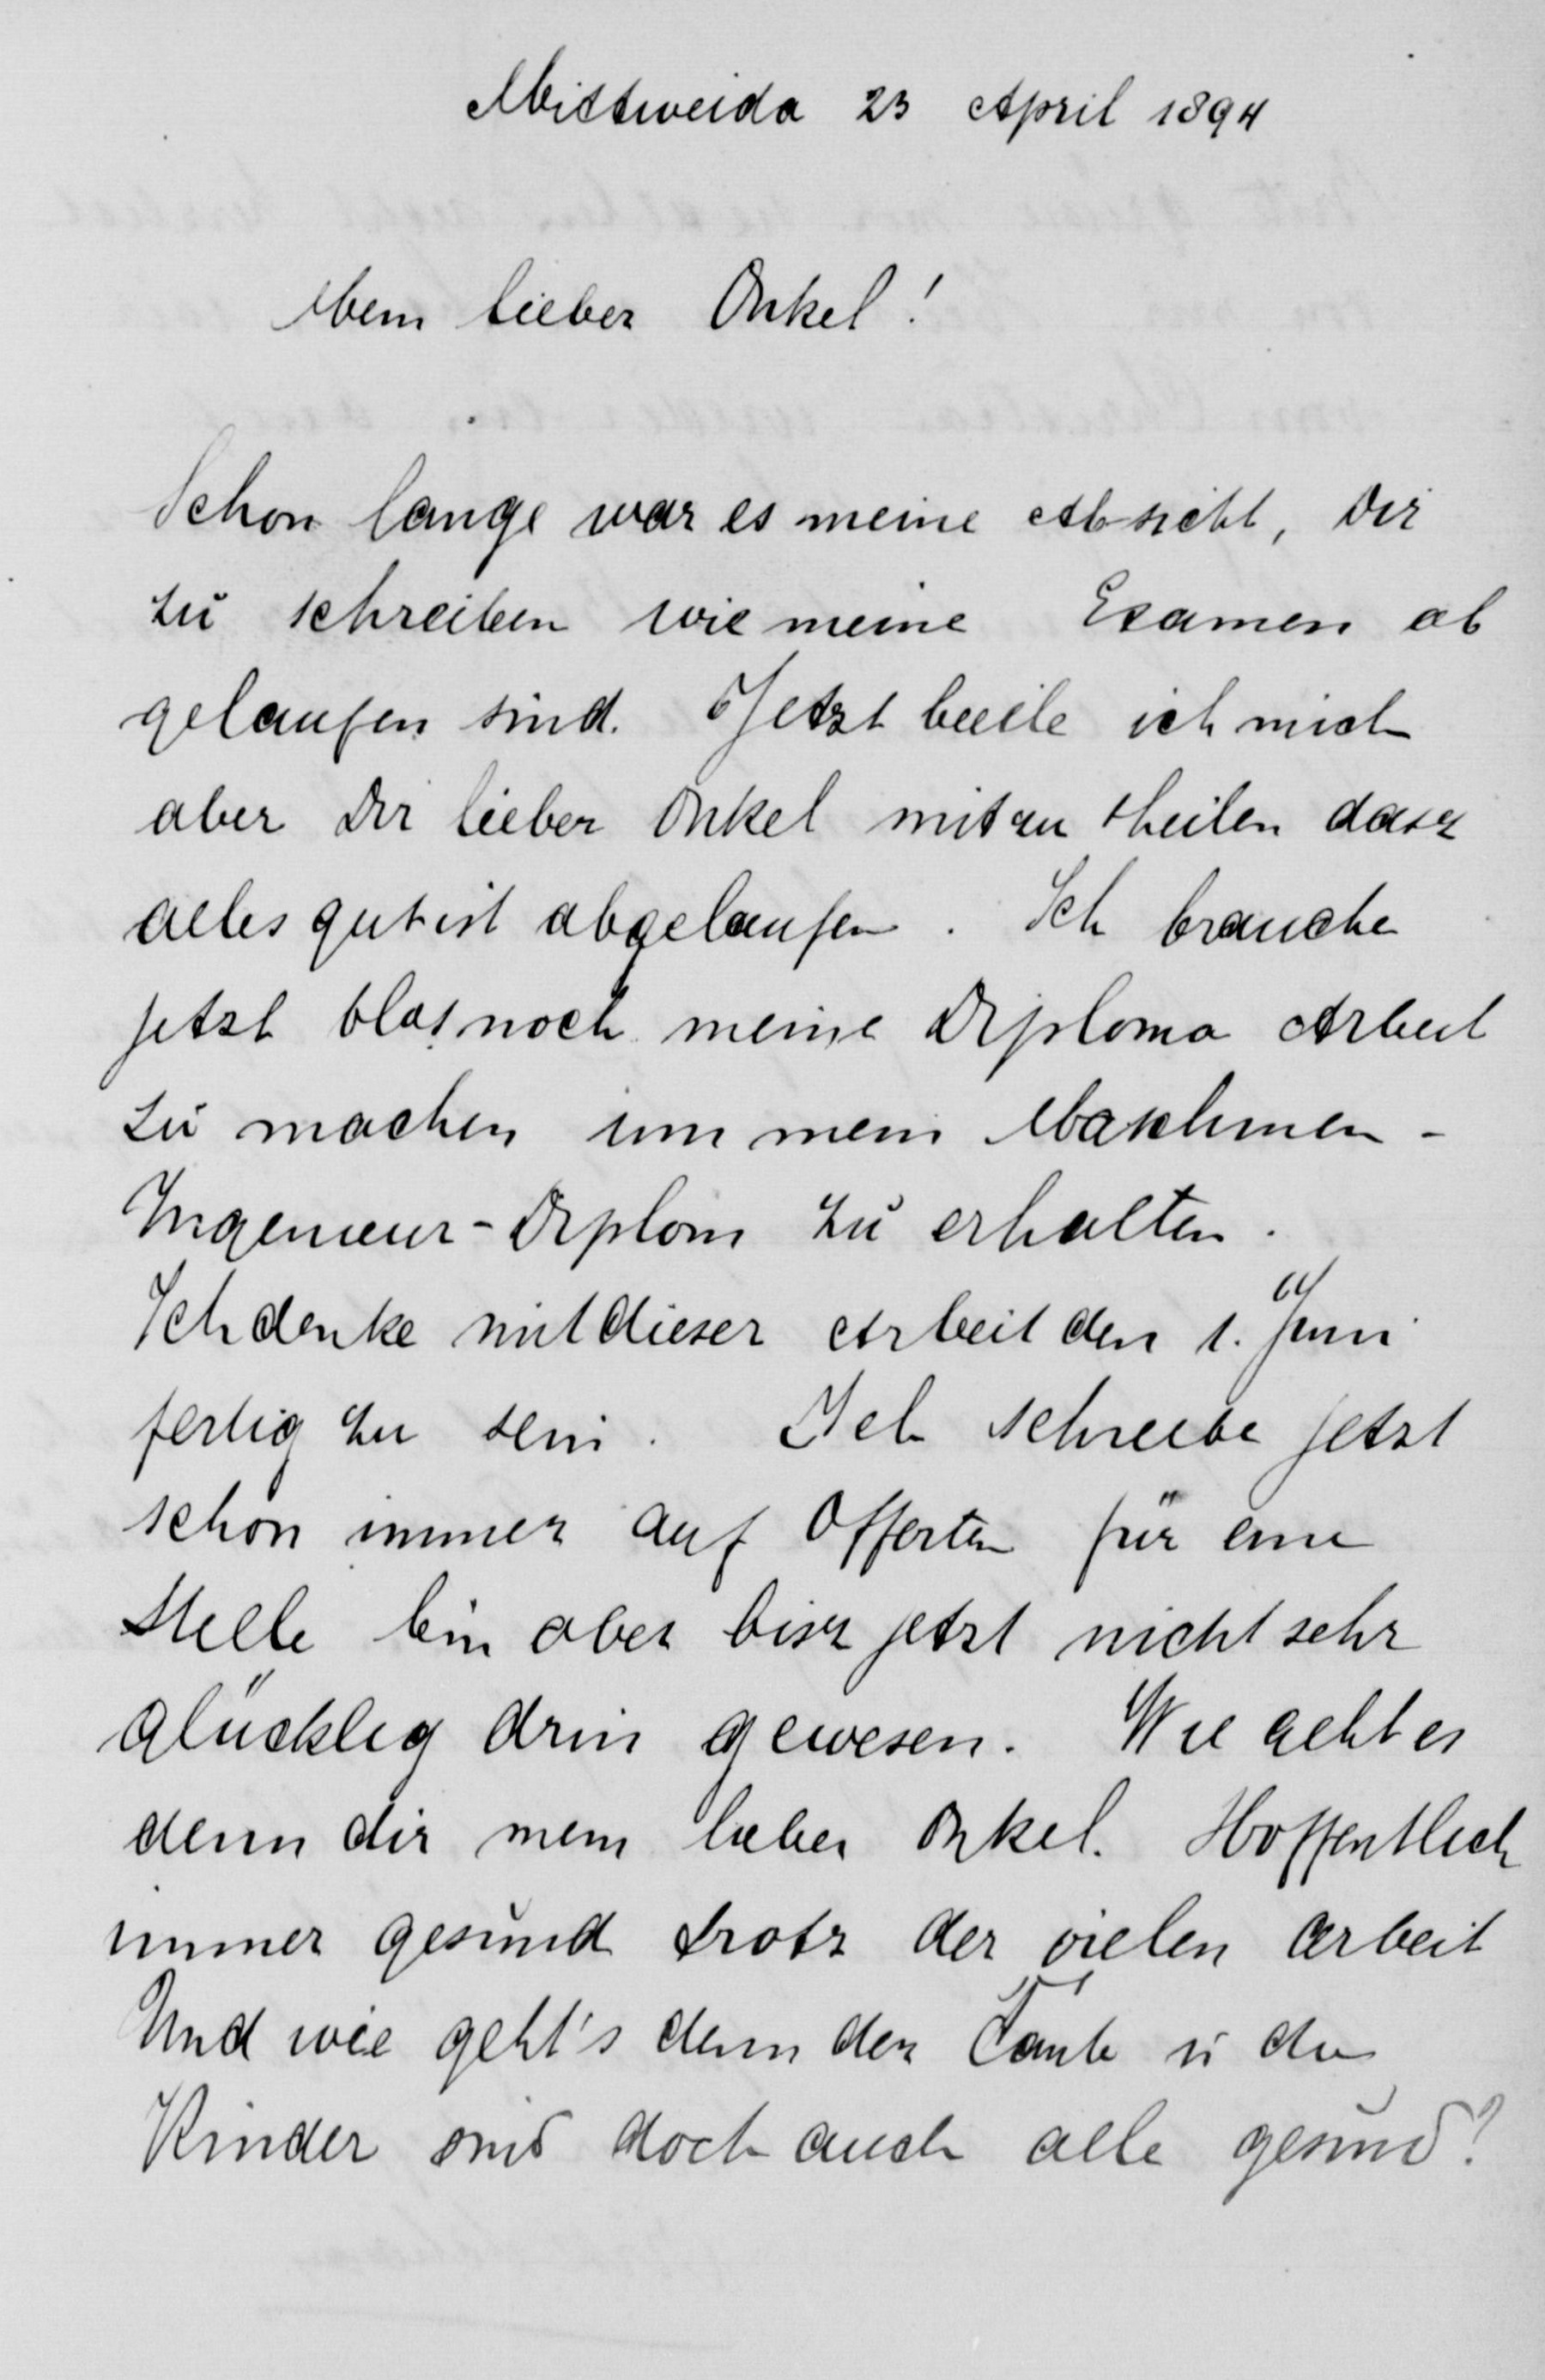 Mittweida 23 April 1894
Mein lieber Onkel!
Schon lange war es meine Absicht, Dir
zu schreiben wie meine Examen ab
gelaufen sind. Jetzt beeile ich mich
aber Dir lieber Onkel mitzu theilen dasz
alles gut ist abgelaufen. Ich brauche
jetzt blos noch meine Diploma Arbeit
zu machen um mein Maschinen-
Ingenieur-Diplom zu erhalten.
Ich denke mit dieser Arbeit den 1. Juni
fertig zu sein. Ich schreibe jetzt
schon immer auf Offerten für eine
Stelle bin aber bisz jetzt nicht sehr
glücklig drin gewesen. Wie geht es
denn dir mein lieber Onkel. Hoffentlich
immer gesund trotz der vielen Arbeit
Und wie geht's denn der Tante u die
Kinder sind doch auch alle gesund?